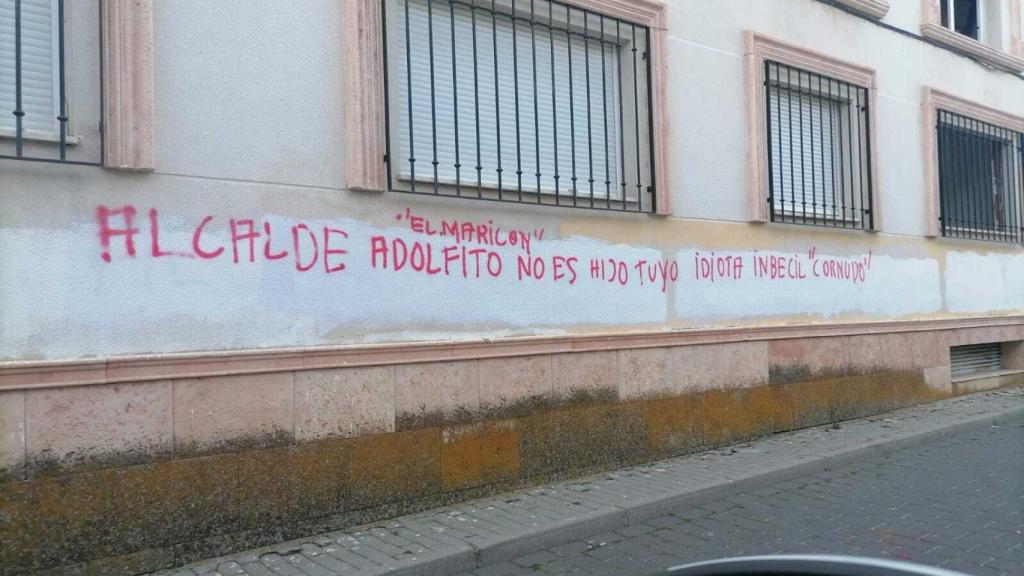 "EL MARICON"
ALCALDE ADOLFITO NO ES HIJO TUYO IDIOTA INBECIL "CORNUDO"